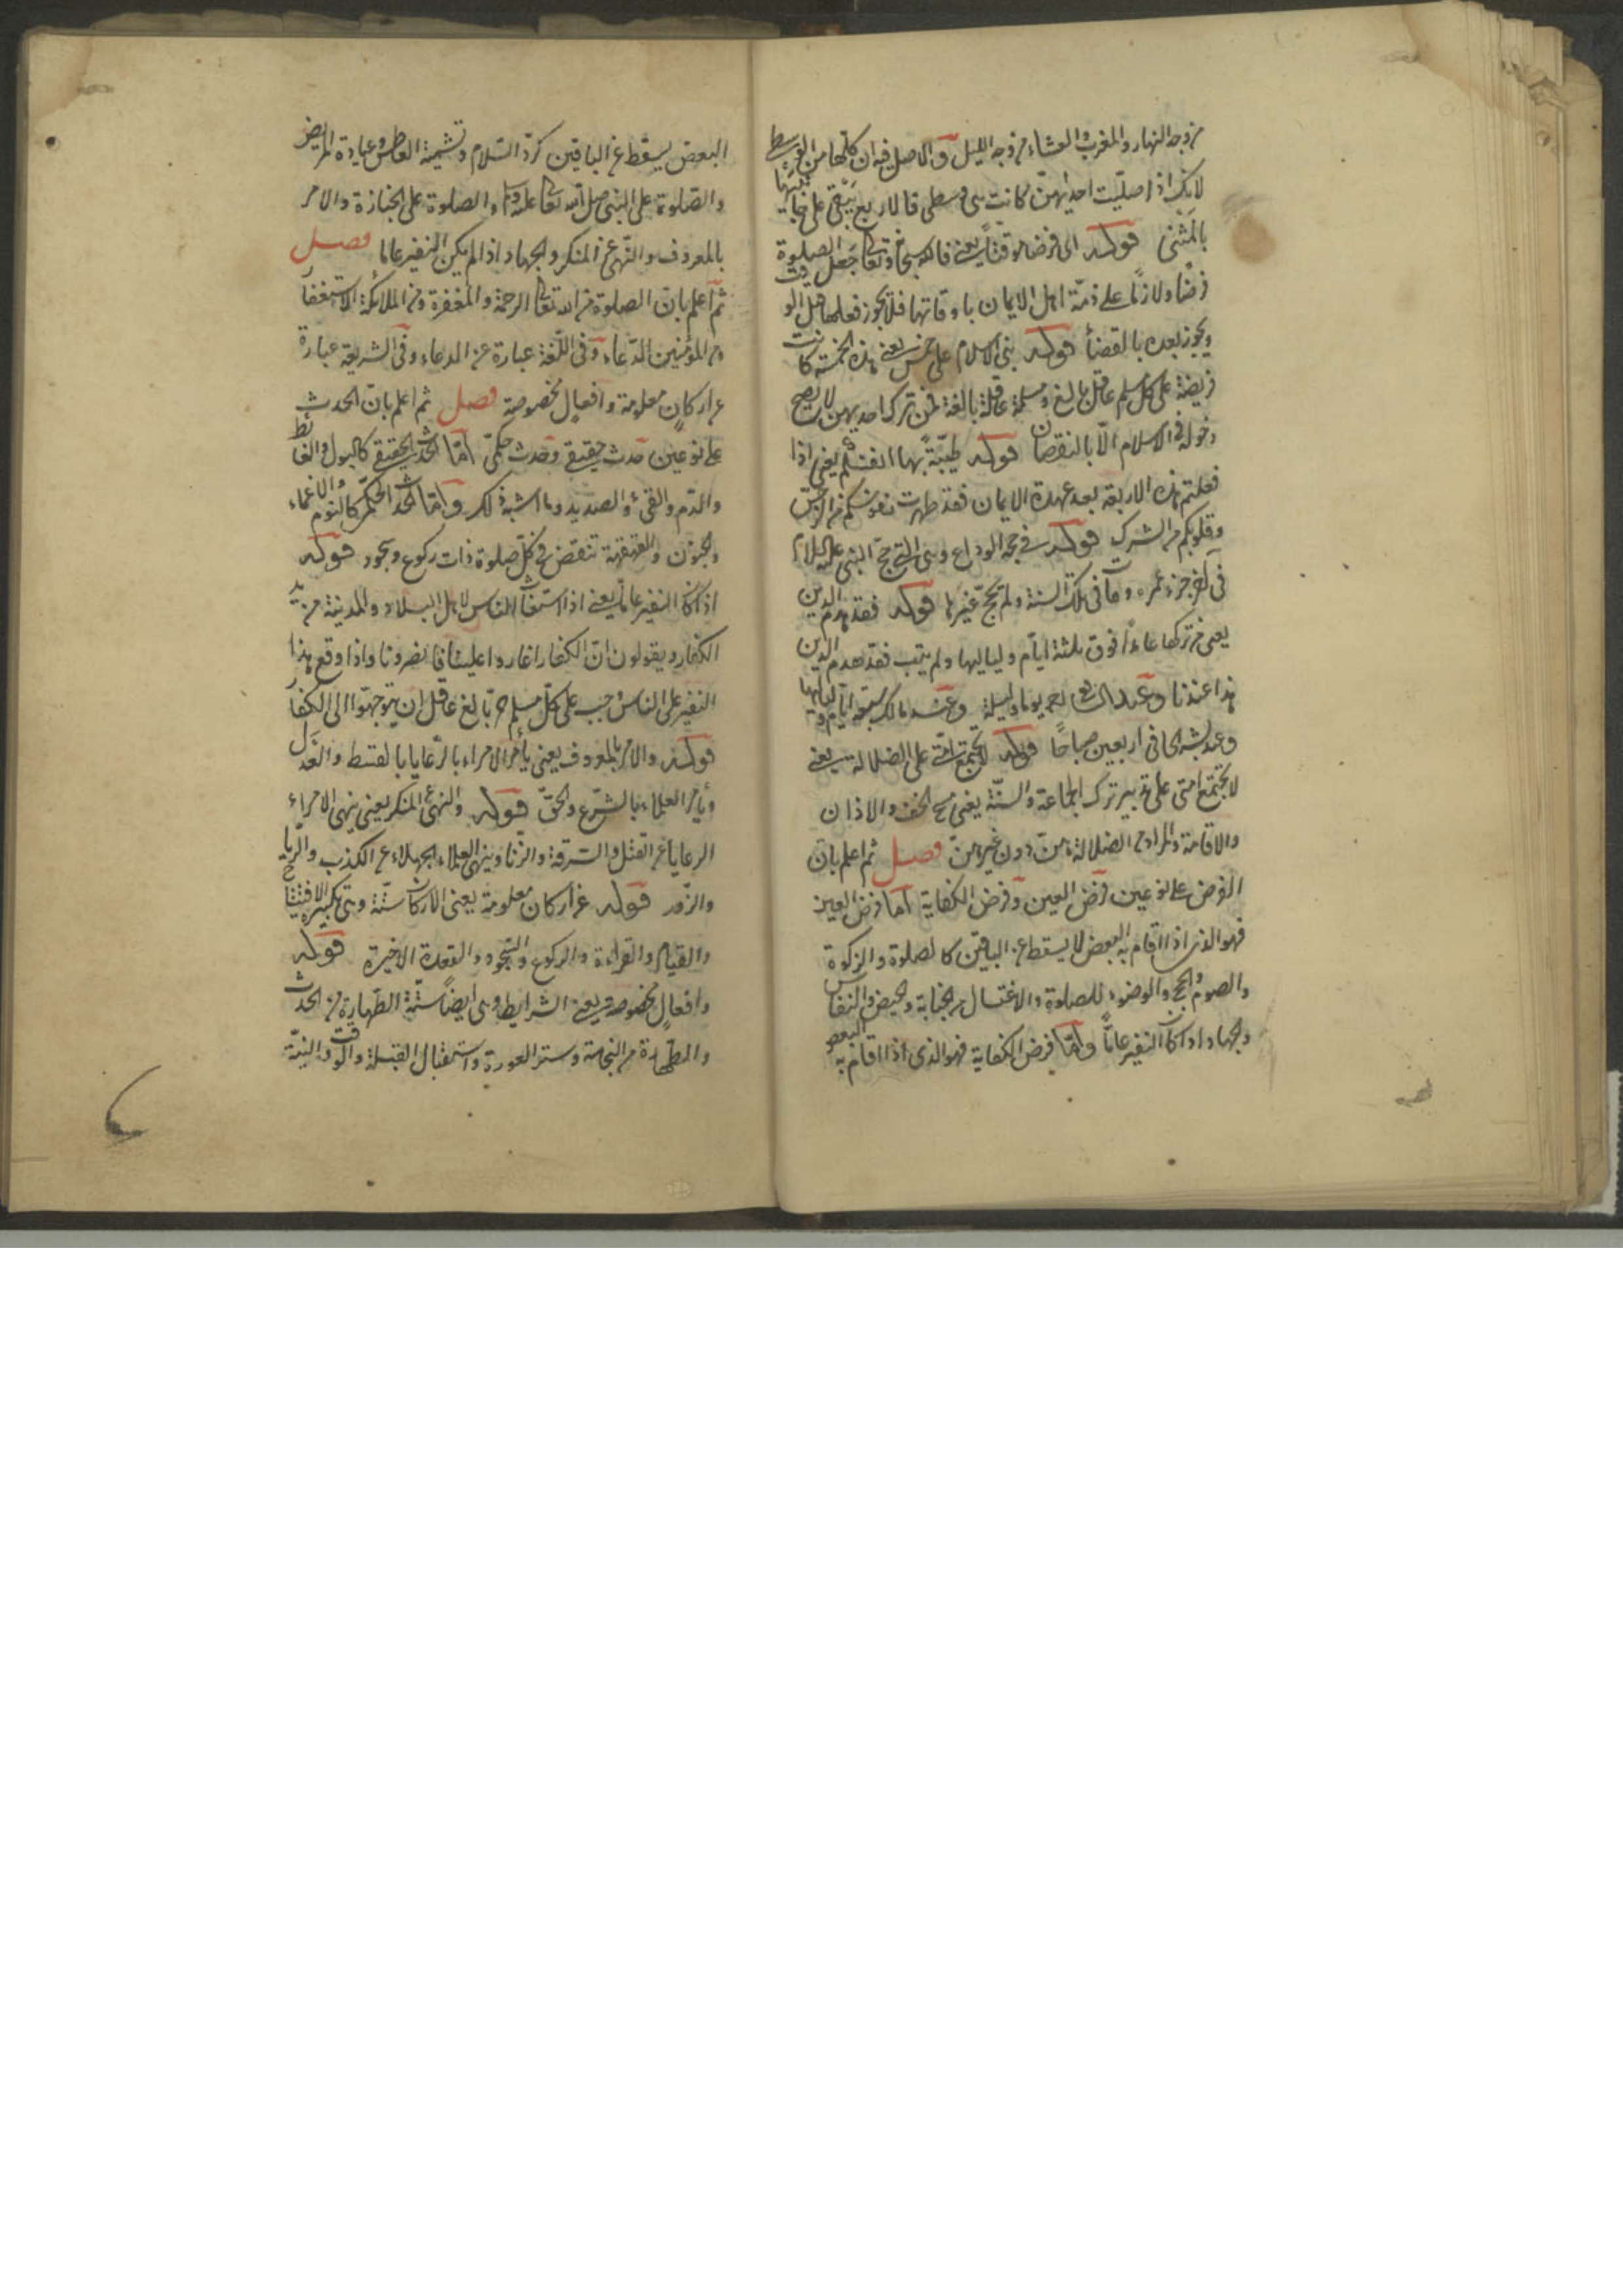 من وجه النهار والمغرب والعشاء من وجه الليل والاصل فيه ان كلّها من الوسطى
لانك اذا صلّيت احديهنّ كانت هى وسطى فالاربع يبقى على جانبيها
بالمثنى قوله اى فرضا موقّتاً يعنى فالله سبحانه وتعالى جعل الصلوة
فرضًا ولازمًا على ذمّة اهل الايمان باوقاتها فلا يجوز فعلها قبل الوقت
ويجوز بعده بالقضأ قوله بنى الاسلام على خمس يعنى هذه الخمسة كانت
فريضة على كلّ مسلم عاقل بالغ ومسلمة عاقلة بالغة فمن ترك احديهن لا يصح
دخوله فى الاسلام الّا بالنقصان قوله طيّبةً بها انفسكم يعنى اذا
فعلتم هذه الاربعة بعد عهدة الايمان فقد طهرت نفوسكم من الرجس
وقلوبكم من الشرك قوله فى حجة الوداع وهى التى حجّ النبى عليه السلام
فى آخر جزء عمره ومات فى تلك السنة ولم يحجّ غيرها قوله فقد هدم الدين
يعنى من تركها عامدًا فوق ثلثة ايّام ولياليها ولم يتب فقد هدم الدين
هذا عندنا وعند الشافعى رحمه يوما وليلة وعند مالك سبعة ايّام ولياليها
وعند بشر الحافى اربعين صباحًا قوله لا يجتمع امّتى على الضلالة يعنى
لا يجتمع امتى على تدبير ترك الجماعة والسنّة يعنى مسح الخف والاذان
والاقامة والمراد من الضلالة منّ دون غيرهنّ فصل ثم اعلم بانّ
الفرض على نوعين فرض العين وفرض الكفاية اما فرض العين
فهو الذى اذا اقام به البعض لا يسقط عن الباقين كالصلوة والزكوة
والصوم والحج والوضوء للصلوة والاغتسال من الجنابة والحيض والنفاس
والجهاد اذا كان النفير عامًّا وامّا فرض الكفاية فهو الذى اذا اقام به البعض
البعض يسقط عن الباقين كردّ السّلام وتشميت العاطس وعيادة المريض
والصّلوة على النبى صلى الله تعالى عليه وسلم والصلوة على الجنازة والامر
بالمعروف والنّهى عن المنكر والجهاد اذا لم يكن النفير عاما فصل
ثمّ اعلم بان الصلوة من الله تعالى الرحمة والمغفرة ومن الملائكة الاستغفار
ومن المؤمنين الدّعاء وفى اللّغة عبارة عن الدعاء وفى الشريعة عبارة
عن اركان معلومة وافعال مخصوصة فصل ثم اعلم بانّ الحدث
على نوعين حدث حقيقى وحدث حكمّى امّا الحدث الحقيقى كالبول والغائط
والدّم والقئ والصديد وما اشبه ذلك وامّا الحدث الحكمّى كالنوم والاغماء
والجنون والقهقهة تنقض فى كلّ صلوة ذات ركوع وسجود قوله
اذا كان النفير عامّا يعنى اذا استغاث الناس لاهل البلاد والمدينة من يد
الكفار ويقولون انّ الكفار اغاروا علينا فانصرونا واذا وقع هذا
النفير على الناس وجب على كلّ مسلم حرّ بالغ عاقل ان يتوجهوا الى الكفار
قوله والامر بالمعروف يعنى يأمر الامراء بالرّعايا بالقسط والعدل
ويأمر العلماء بالشّرع والحقّ قوله والنهى عن المنكر يعنى ينهى الامراء
الرعايا عن القتل والسّرقة والزّنا وينهى العلماء الجهلاء عن الكذب والرّيا
والزّور قوله عن اركان معلومة يعنى الاركان ستّة وهى تكبيرة الافتتاح
والقيام والقراءة والركوع والسّجود والقعدة الاخيرة قوله
وافعالٍ مخصوصة يعنى الشرايط وهى ايضاً ستّة الطّهارة من الحدث
والطّهارة من النجاسة وستر العورة واستقبال القبلة والوقت والنيّة